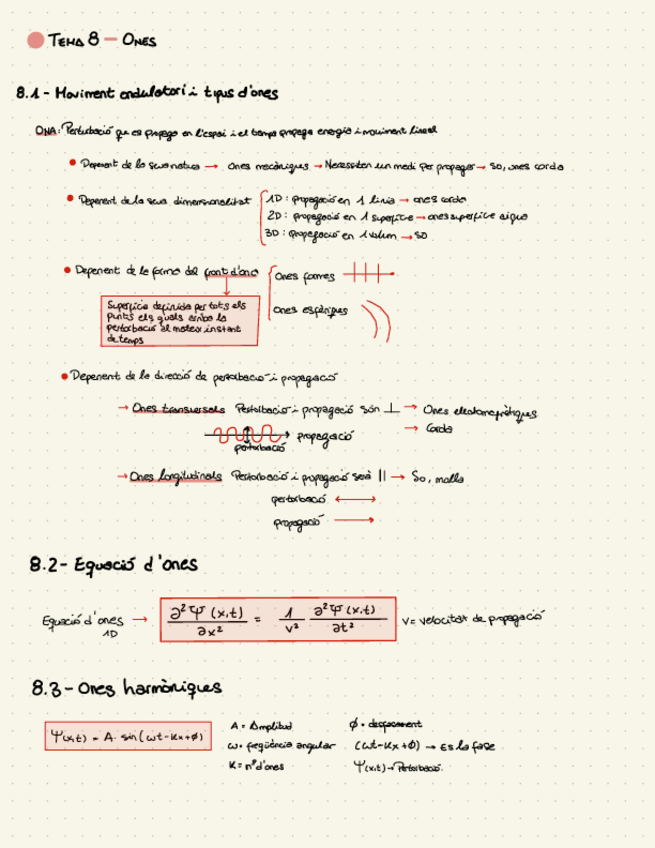 Tema 8 — Ones
8.1 - Moviment ondulatori i tipus d'ones
ONA: Perturbació que es propaga en l'espai i el temps propaga energia i moviment lineal
• Depenent de la seva natura → Ones mecàniques → Necessiten un medi per propagar → So, ones corda
• Depenent de la seva dimensionalitat
1D: propagació en 1 línia → ones corda
2D: propagació en 1 superfície → ones superfície aigua
3D: propagació en 1 volum → so
• Depenent de la forma del front d'ona
Ones
Superfície definida per tots els
punts els quals arriba la
pertorbació al mateix instant
de temps
Ones esfèriques
• Depenent de la direcció de pertorbació i propagació
→ Ones transversals Pertorbació i propagació són ⊥ → Ones electromagnètiques
→ Corda
propagació
pertorbació
→ Ones longitudinals Pertorbació i propagació serà || → So, molla
pertorbació ↔
propagació →
8.2 - Equació d'ones
Equació d'ones → ∂²Ψ(x,t)/∂x² = 1/v² ∂²Ψ(x,t)/∂t² v = velocitat de propagació
1D
8.3 - Ones harmòniques
Ψ(x,t) = A · sin(ωt-kx+φ)
A = Amplitud
ω = freqüència angular
K = nº d'ones
φ = desfasament
(ωt-kx+φ) → És la fase
Ψ(x,t) → Pertorbació